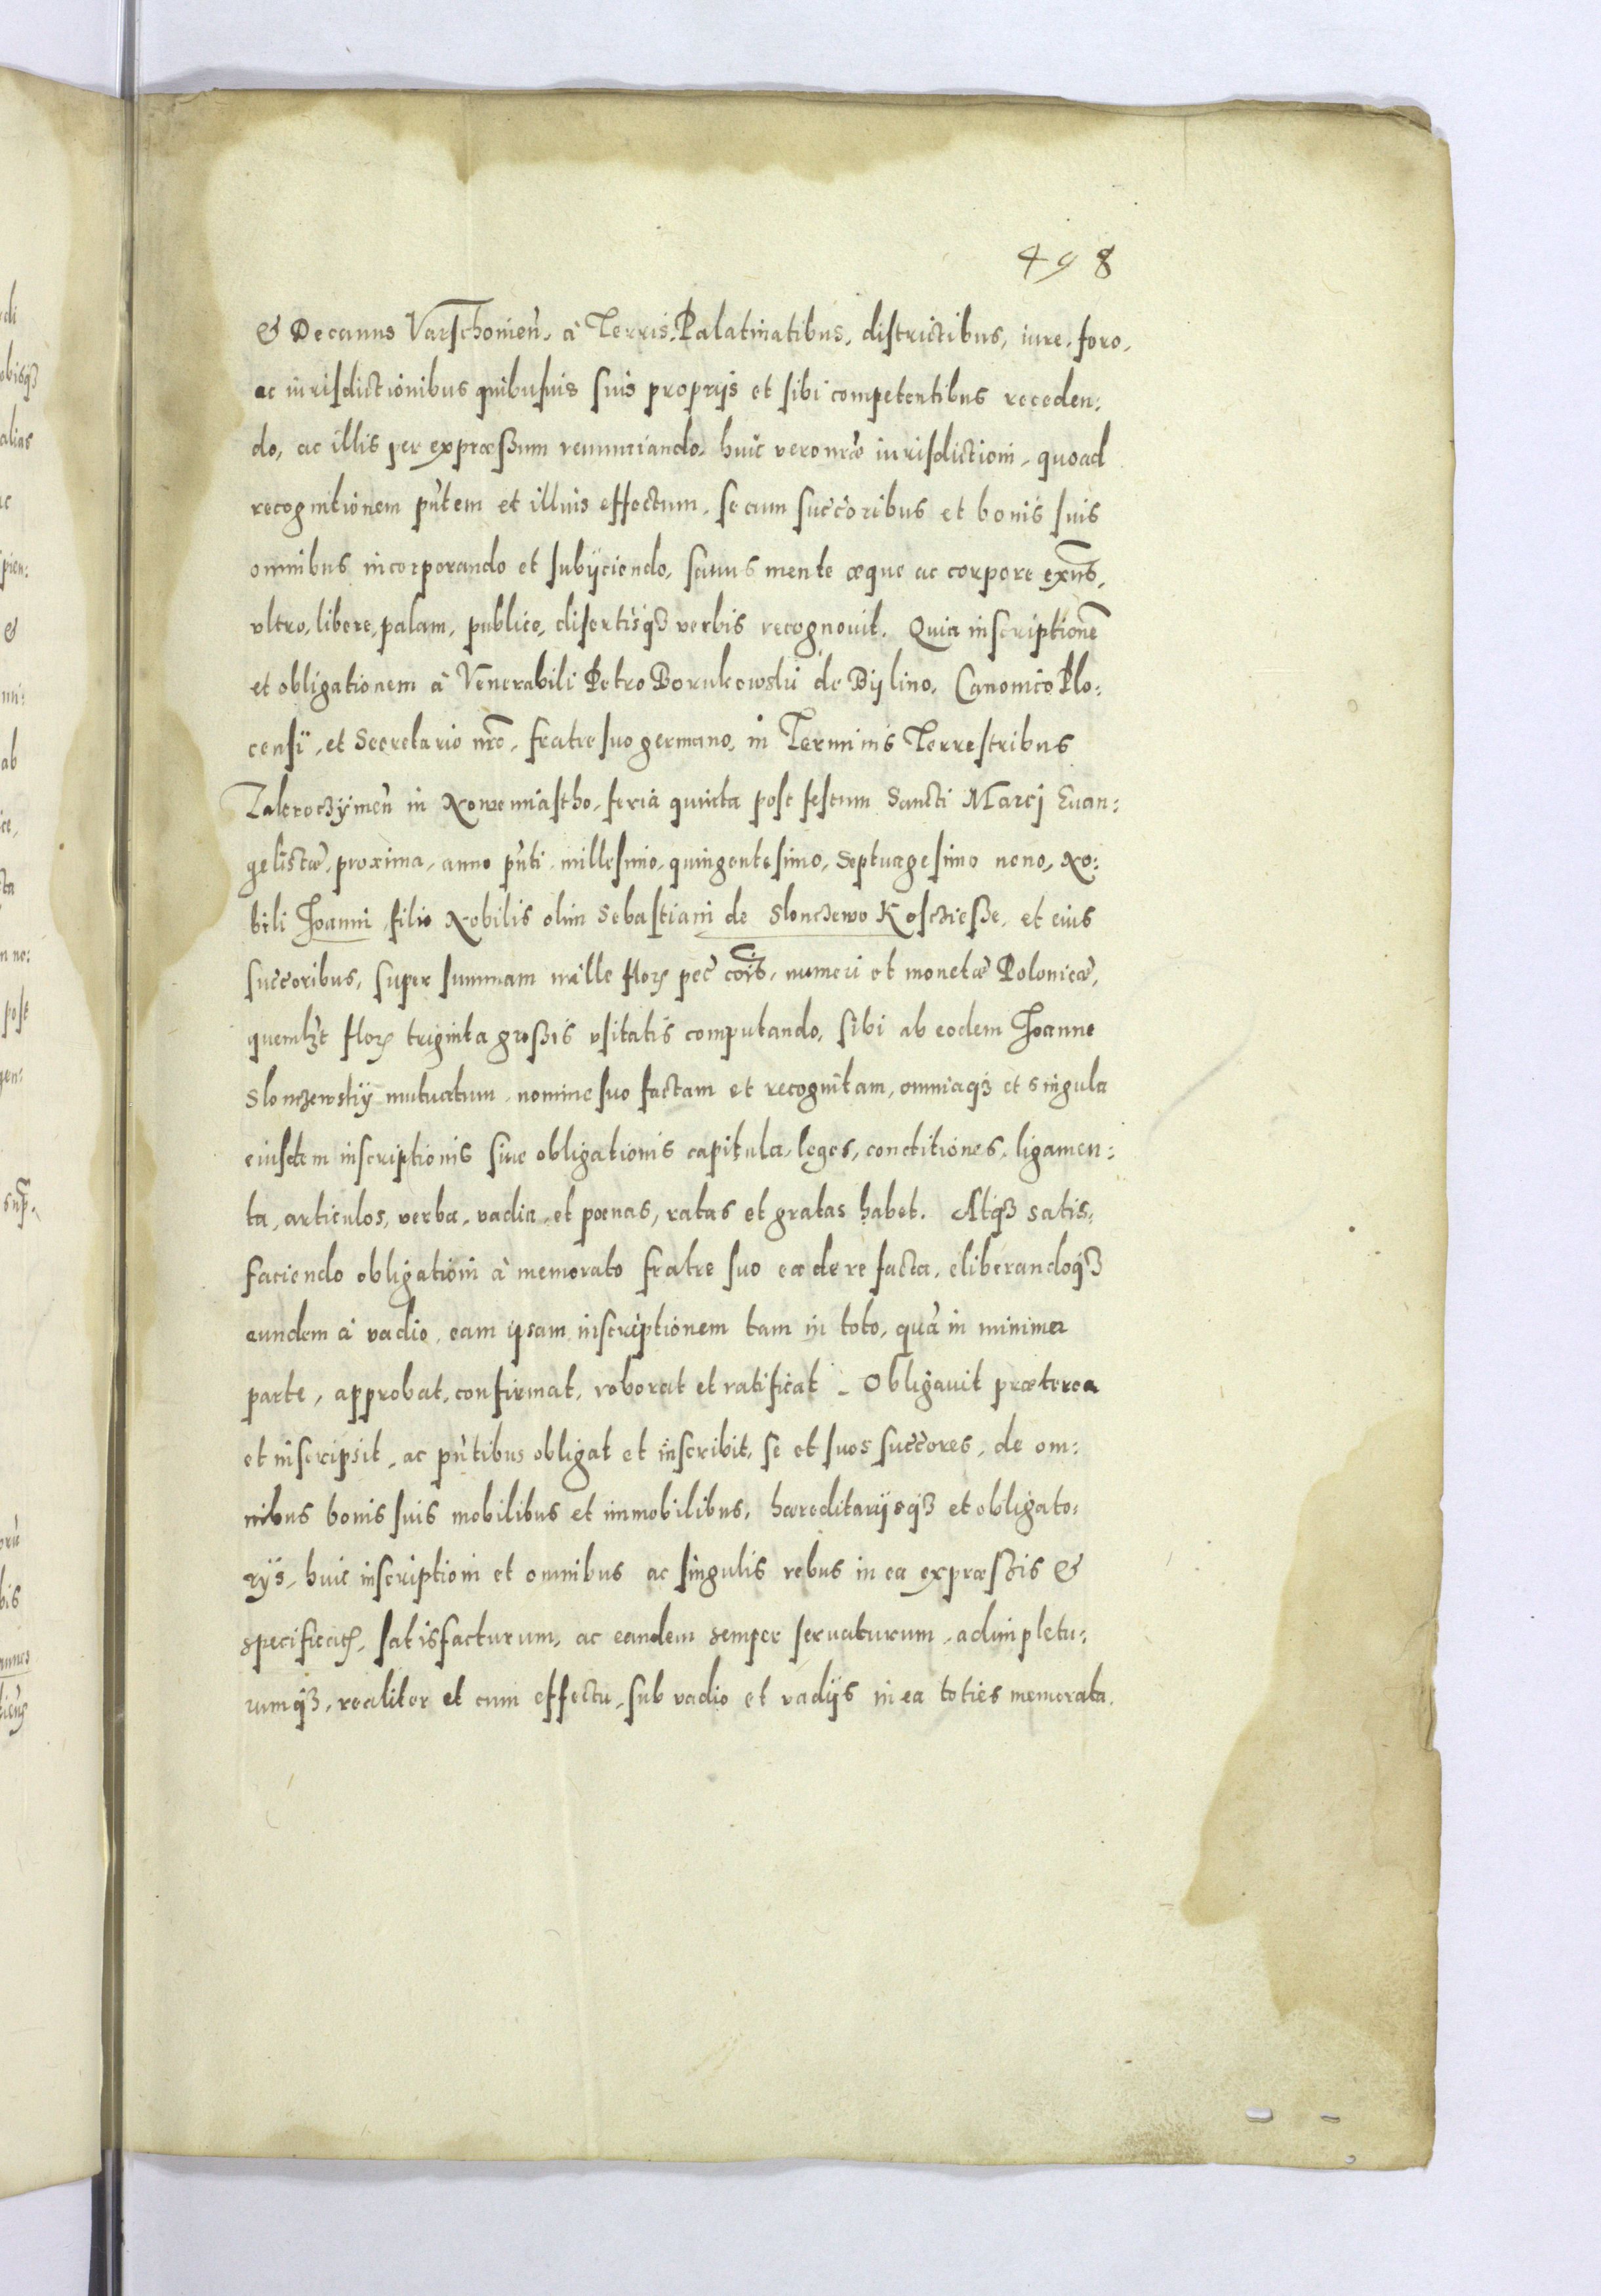 498
& Decanus Varschonień, à Terris, Palatinatibus, districtibus, iure, foro,
ac iurisdictionibus quibusuis suis proprijs et sibi competentibus receden:
do, ac illis per expræßum renunciando, huic vero nræ iurisdictioni, quoad
recognitionem pñtem et illius effectum, se cum succoribus et bonis suis
omnibus incorporando et subijciendo, sanus mente æque ac corpore exñs,
vltro, libere, palam, publice, disertisqꝫ verbis recognouit. Quia inscriptionē
et obligationem à Venerabili Petro Borukowski de Bijlino, Canonico Plo:
censi, et Secretario nrō, fratre suo germano, in Terminis Terrestribus
Zakroczÿmeń in Nowemiastho, feria quinta post festum Sancti Marcj Euan:
gelistæ, proxima, anno pñti millesimo, quingentesimo, septuagesimo nono, No:
bili Joanni filio Nobilis olim Sebastiani de Slonczewo Koschieße, et eius
succoribus, super summam mille florꝭ pec̃ cōis, numeri et monetæ Polonicæ,
quemlꝫt florꝭ triginta großis vsitatis computando, sibi ab eodem Joanne
Slonczewskÿ mutuatum, nomine suo factam et recognitam, omniaqꝫ et singula
eiusdem inscriptionis siue obligationis capitula, leges, conditiones, ligamen:
ta, articulos, verba, vadia, et pœnas, ratas et gratas habet. Atqꝫ satis,
faciendo obligationi à memorato fratre suo ea de re facta, eliberandoqꝫ
eundem à vadio, eam ipsam inscriptionem tam in toto, quà in minima
parte, approbat, confirmat, roborat et ratificat. Obligauit præterea
et inscripsit, ac pñtibus obligat et inscribit, se et suos succores, de om:
nibus bonis suis mobilibus et immobilibus, hæreditarijsqꝫ et obligato:
rÿs, huic inscriptioni et omnibus ac singulis rebus in ea expræßis &
specificatꝭ, satisfacturum, ac eandem semper seruaturum, adimpletu:
rumqꝫ, realiter et cum effectu, sub vadio et vadijs in ea toties memorata.